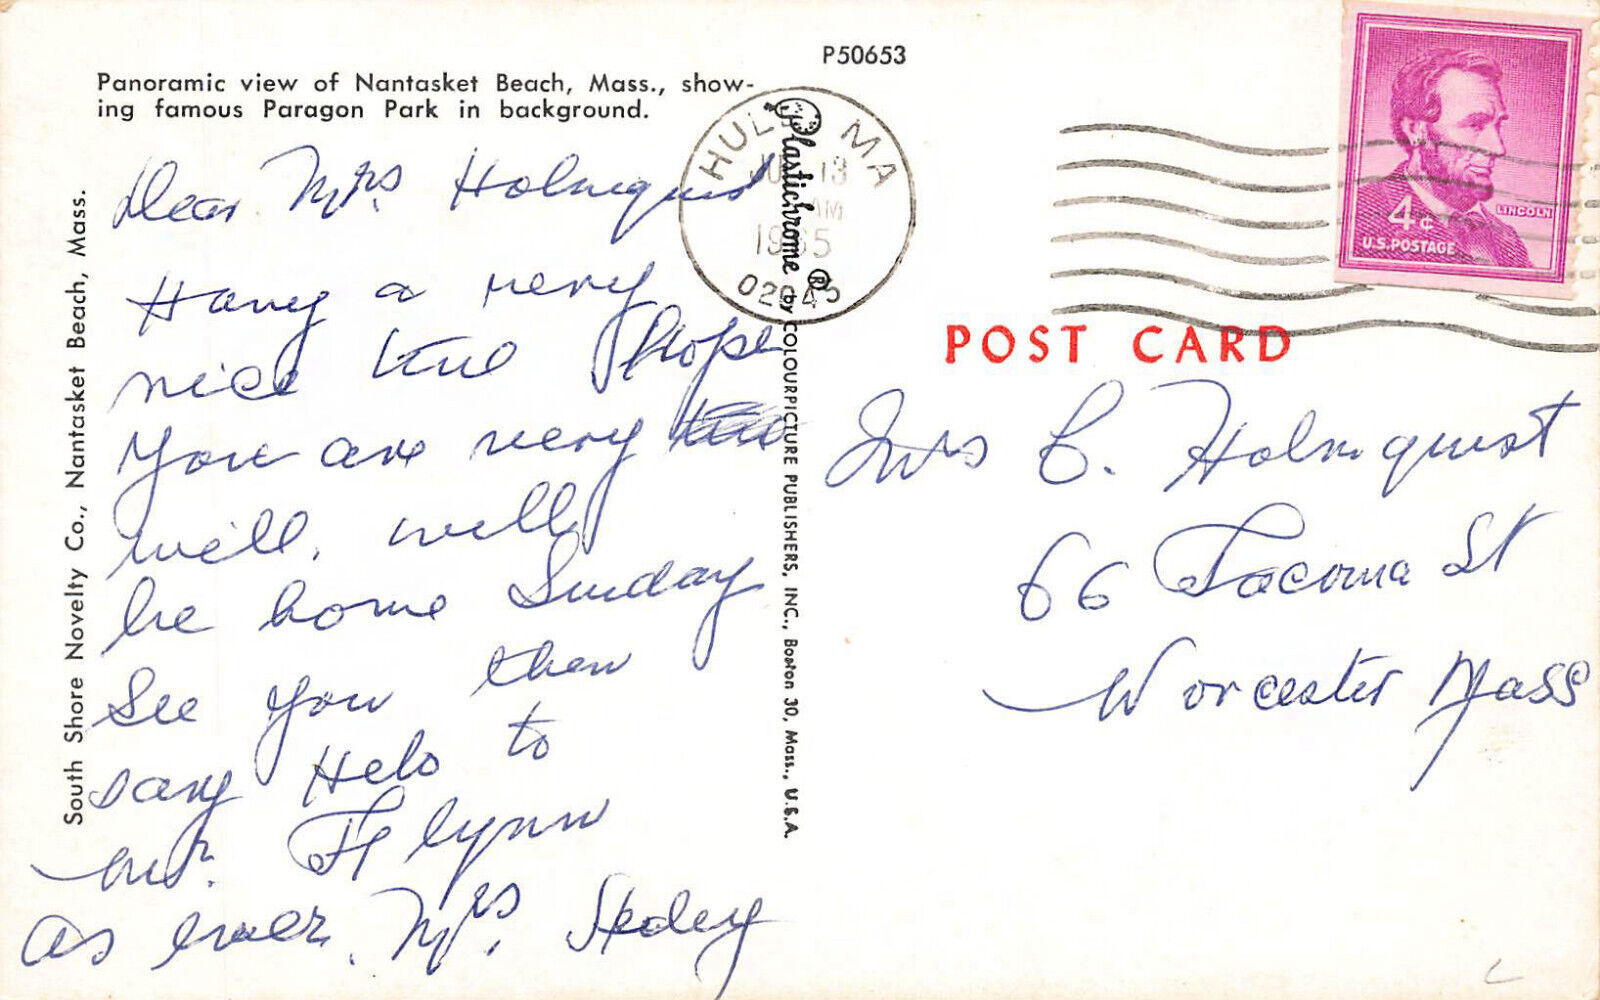 P50653
Panoramic view of Nantasket Beach, Mass., show-
ing famous Paragon Park in background.
South Shore Novelty Co., Nantasket Beach, Mass.
Plastichrome ® by COLOURPICTURE PUBLISHERS, INC., Boston 30, Mass., U.S.A.
HULL MA
13
AM
1965
POST CARD
4¢
LINCOLN
U.S. POSTAGE
Dear Mrs Holmquist
Havy a very
nice time I hope
you are very
well. will
be home Sunday
See you then
say Helo to
mr. Flynn
as ever. Mrs.
Mrs C. Holmquist
66 Tacoma St
Worcester Mass